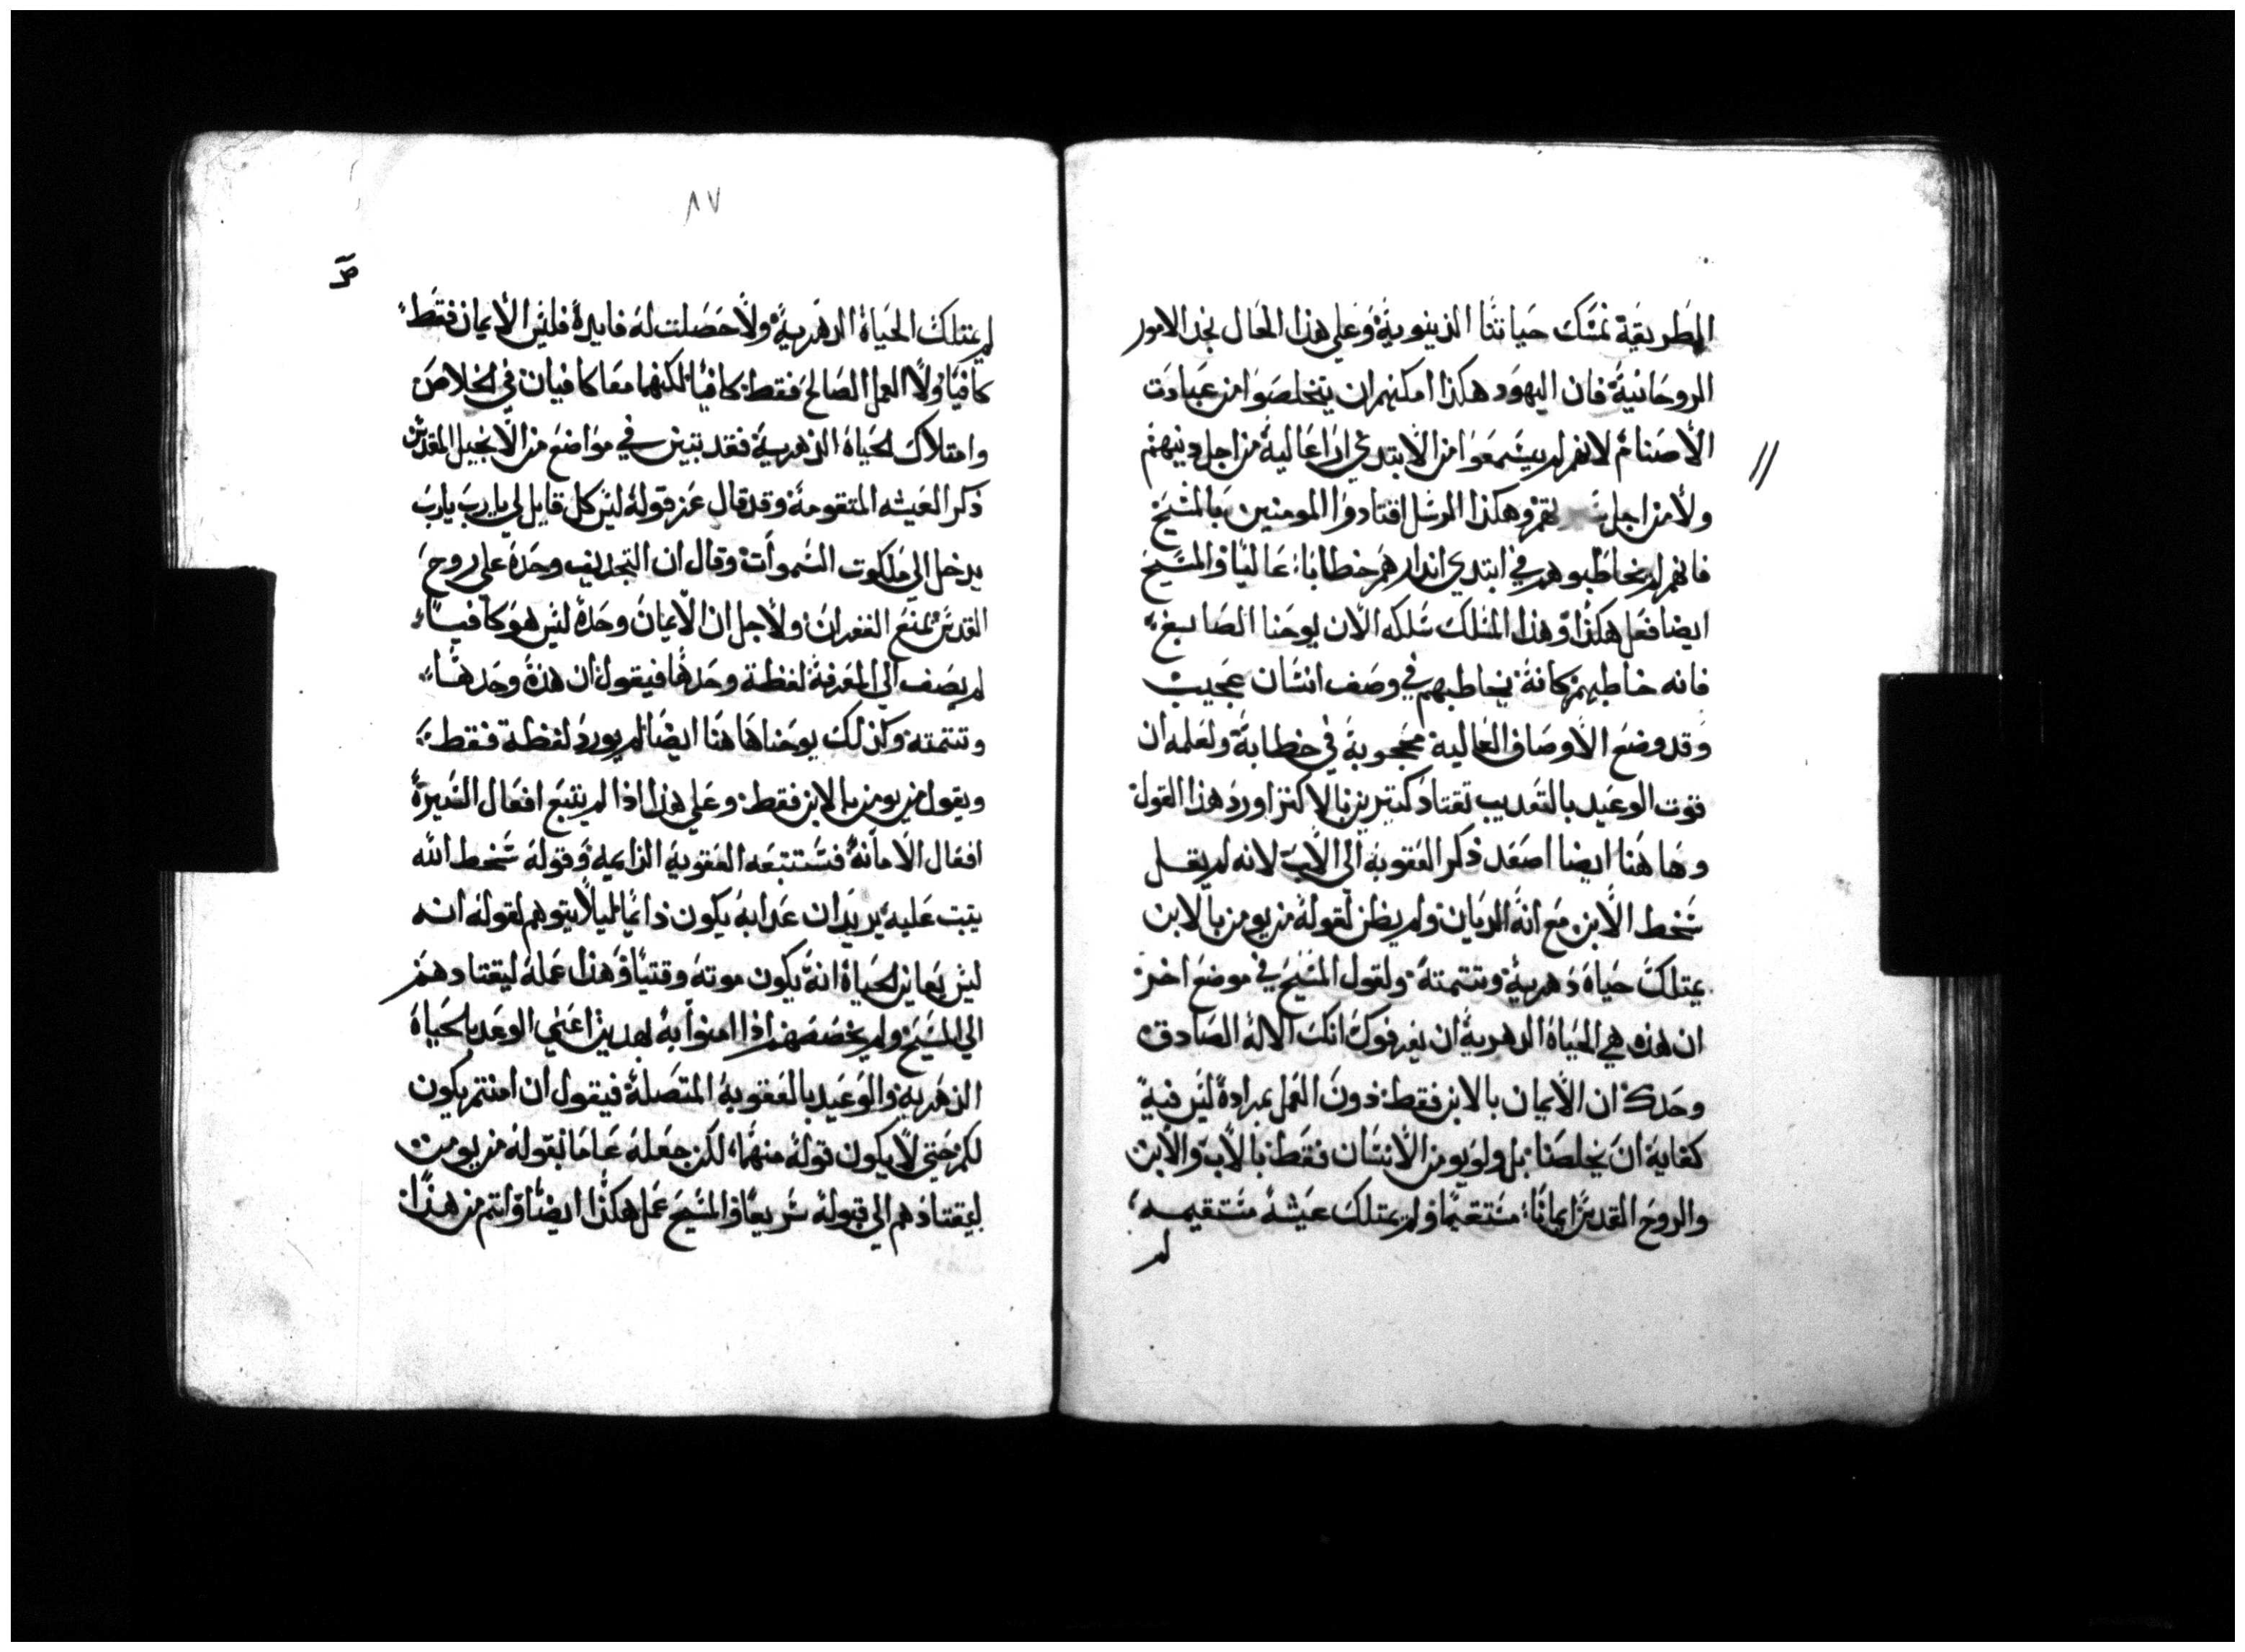 الطريقة نمسك حياتنا الدنيوية وعلي هذا الحال نجد الامور
الروحانية فان اليهود هكذا امكنهم ان يتخلصوا من عبادت
الأصنام لانهم لم يسمعوا من الابتدي اراعالية من اجل دينهم
ولا من اجل وهكذا الرسل اقتادوا المومنين بالمسيح
فانهم لم يخاطبوهم في ابتدي اندارهم خطابا عاليا والمسيح
ايضا فعل هكذا وهذا المسلك سلكه الان يوحنا الصابغ
فانه خاطبهم كانه يخاطبهم في وصف انسان عجيب
وقد وضع الاوصاف العالية محجوبة في خطابة ولعلمه ان
قوت الوعيد بالتعديب تقتاد كتيرين بالاكتر اورد هذا القول
وهاهنا ايضا اصعد ذكر العقوبة الي الاب لانه لم يقل
سخط الابن مع انه الديان ولم يظن لقوله من يومن بالابن
يمتلك حياة دهرية وتتمته ولقول المسيح في موضع اخر
ان هذه هي الحياة الدهرية ان يعرفوك انك الاله الصادق
وحدك ان الايمان بالابن فقط دون العمل بمرادة ليس فية
كفاية ان يخلصنا بل ولو يومن الانسان فقط بالاب والابن
والروح القدس ايمانا مستقيما ولم يمتلك عيشة مستقيمه
لم
٨٧
لم يمتلك الحياة الدهرية ولا حصلت له فايدة فليس الأيمان فقط
كافيا ولا العمل الصالح فقط كافيا لكنهما معا كافيان في الخلاص
وامتلاك الحياة الدهرية فقد تبين في مواضع من الانجيل المقدس
ذكر العيشه المتقومة وقد قال عز قوله ليس كل قايل لي يارب يارب
يدخل الي ملكوت السموات وقال ان التجديف وحده علي روح
القدس يمنع الغفران ولاجل ان الايمان وحده ليس هو كافيا
لم يصف الي المعرفة لفظة وحدها فيقول ان هذة وحدها
وتتمته وكذلك يوحنا هاهنا ايضا لم يورد لفظة فقط
ويقول من يومن بالابن فقط وعلي هذا اذا لم يتبع افعال السيرة
افعال الامانة فستتبعه العقوبة الدايمة وقوله سخط الله
يتبت علية يريد ان عدابه يكون دائما ليلا يتوهم لقوله انه
ليس يعاين الحياة انه يكون موته وقتيا وهذا عمله ليقتادهم
الي المسيح ولم يخصصهم اذا امنوا به بهدين اعني الوعد بالحياة
الدهرية والوعيد بالعقوبة المتصلة فيقول ان امنتم يكون
لكم حتي لا يكون قوله منهما لكن جعله عاما بقوله من يومن
ليقتادهم الي قبوله سريعا والمسيح عمل هكذا ايضا واتم من هذا